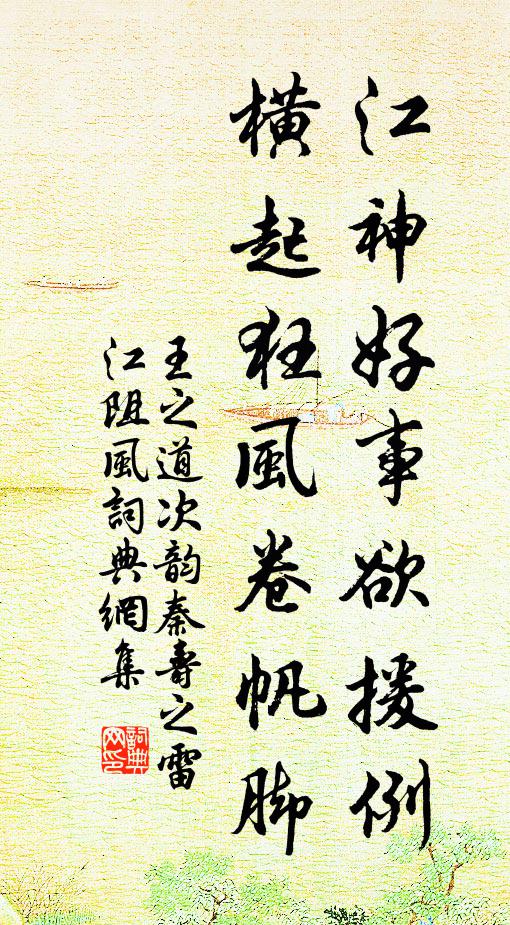 江神好事欲援例
橫起狂風卷帆脚
王之道次韵秦壽之雷
江阻風詞典網集
詞典網印